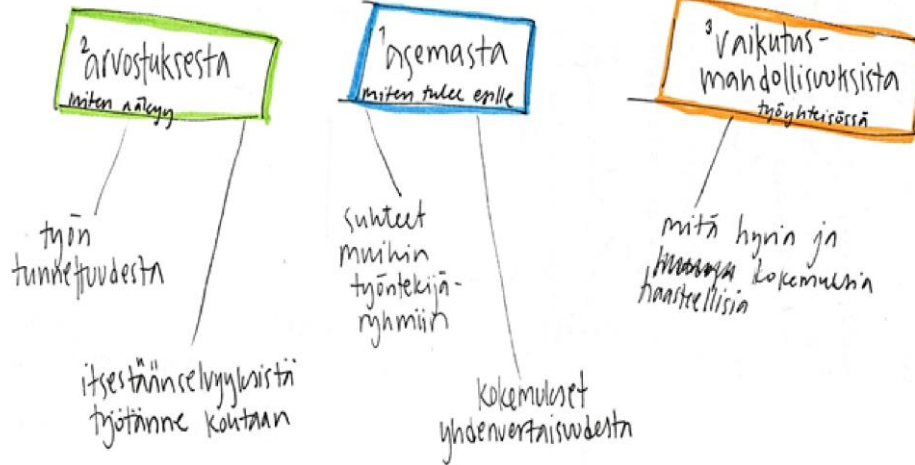 ² arvostuksesta
miten näkyy
työn
tunnettuudesta
itsestäänselvyyksistä
työtänne kohtaan
¹ Asemasta
miten tulee esille
suhteet
muihin
työntekijä-
ryhmiin
kokemukset
yhdenvertaisuudesta
³ vaikutus-
mahdollisuuksista
työyhteisössä
mitä hyviä ja
kokemuksia
haasteellisia